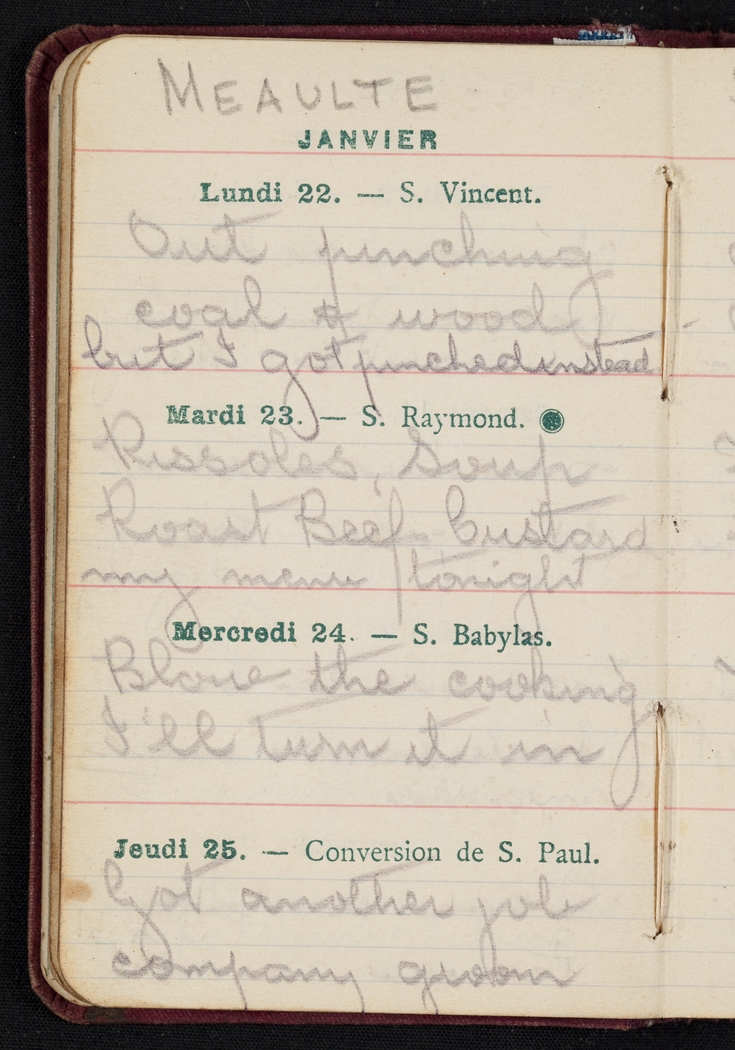 MEAULTE
JANVIER
Lundi 22. — S. Vincent.
Out pinching
coal & wood
but I got pinched instead
Mardi 23. — S. Raymond.
Rissoles, Soup
Roast Beef Custard
my menu tonight
Mercredi 24. — S. Babylas.
Blow the cooking
I'll turn it in
Jeudi 25. — Conversion de S. Paul.
Got another job
company groom